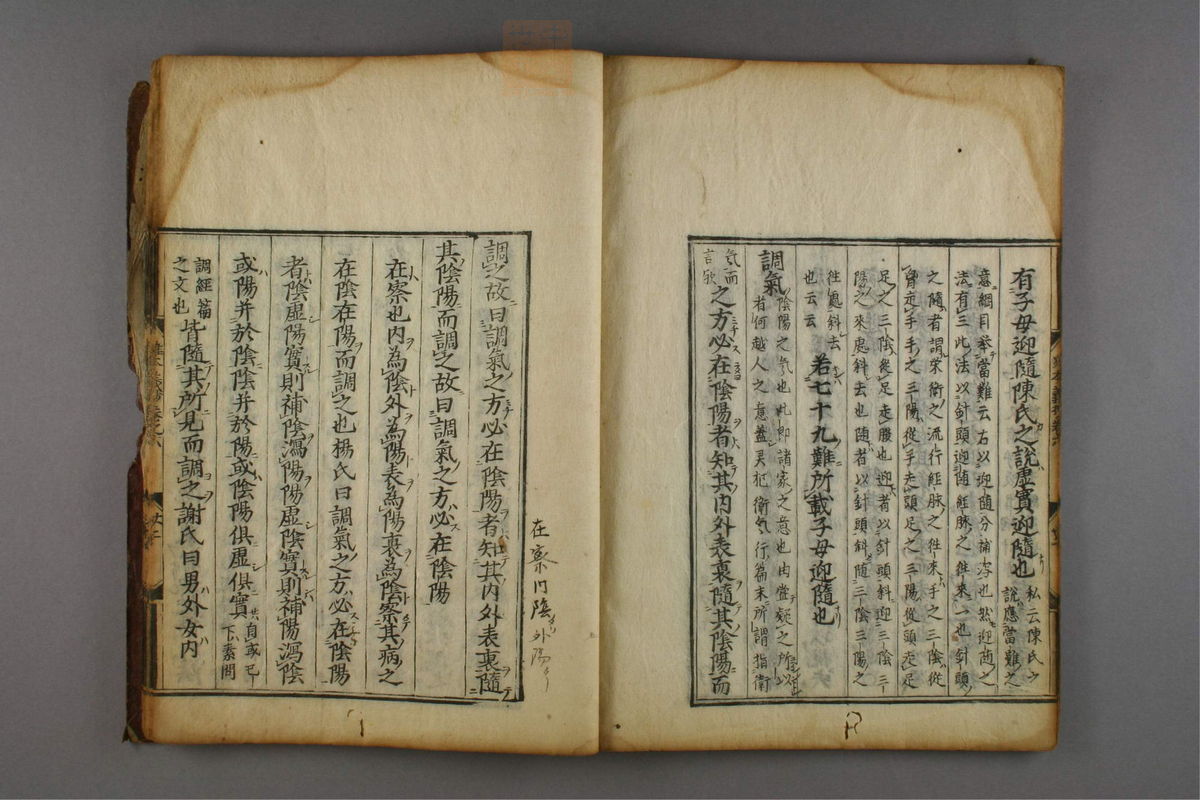 有子母迎隨陳氏之說虛實迎隨也 私云陳氏之說應當難之
意綱目發當難云右以迎隨分補瀉也然迎隨之
法有三此法以針頭迎隨經脉之往來一也針頭
之隨者謂榮衛之流行經脉之往來手之三陰從
胷走手手之三陽從手走頭足之三陽從頭走足
足之三陰從足走腹也迎者以針頭斜迎三陰三
陽之來處斜去也隨者以針頭斜隨三陰三陽之
往處斜去也云云 若七十九難所載子母迎隨也
調氣 陰陽之氣也此即諸家之意也由當疑之所以
者何越人之意蓋 衛氣行篇末所謂指衛
氣而言歟 之方必在陰陽者知其内外表裏隨其陰陽而
調之故曰調氣之方必在陰陽者知其内外表裏隨
其陰陽而調之故曰調氣之方必在陰陽
在察也内為陰外為陽表為陽裏為陰察其病之
在陰在陽而調之也楊氏曰調氣之方必在陰陽
者陰虛陽實則補陰瀉陽陽虛陰實則補陽瀉陰
或陽并於陰陰并於陽或陰陽俱虛俱實 共自或已下素問
調經篇之文也 皆隨其所見而調之謝氏曰男外女内
在察内陰外陽